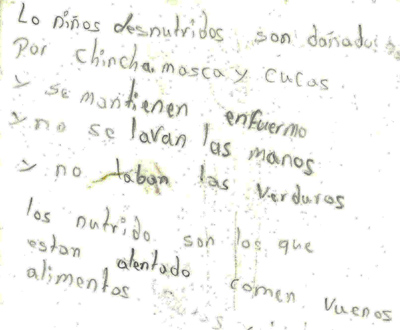 Lo niños desnutridos son dañados
Por chincha mosca y cucas
y se mantienen enfuermo
y no se lavan las manos
y no laban las verduras
los nutrido son los que
estan alentado comen vuenos
alimentos